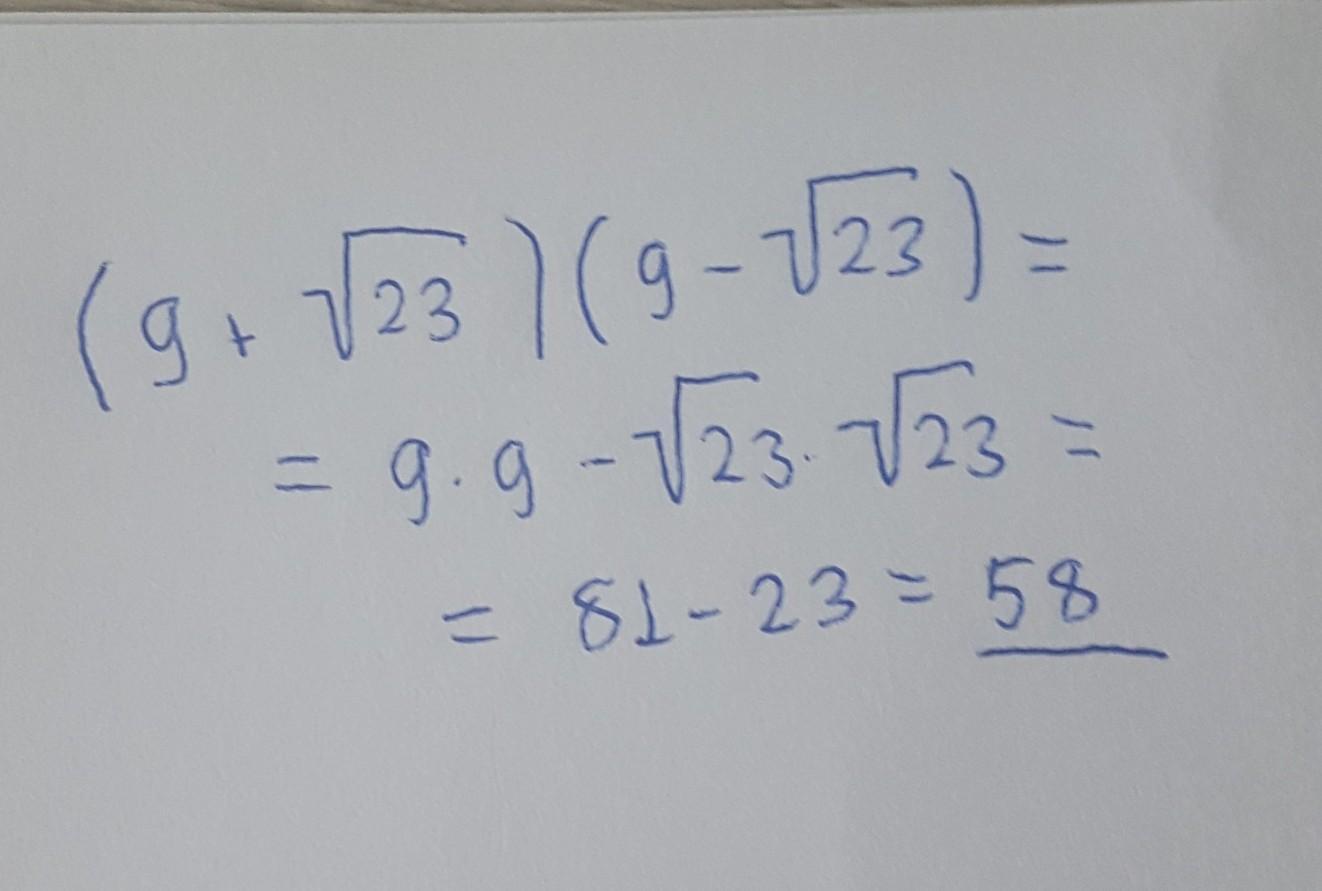 (9 + √23)(9 - √23) =
= 9 · 9 - √23 · √23 =
= 81 - 23 = 58